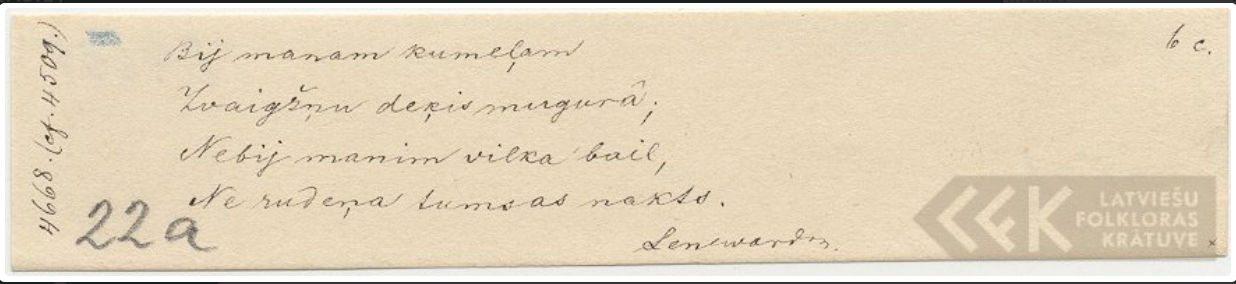 Bij manam kumeļam
Zvaigžņu deķis mugurâ;
Nebij manim vilka bail,
Ne rudeņa tumsas nakts.
6 c.
4668. (cf. 4509.)
22a
LATVIEŠU
FOLKLORAS
KRĀTUVE